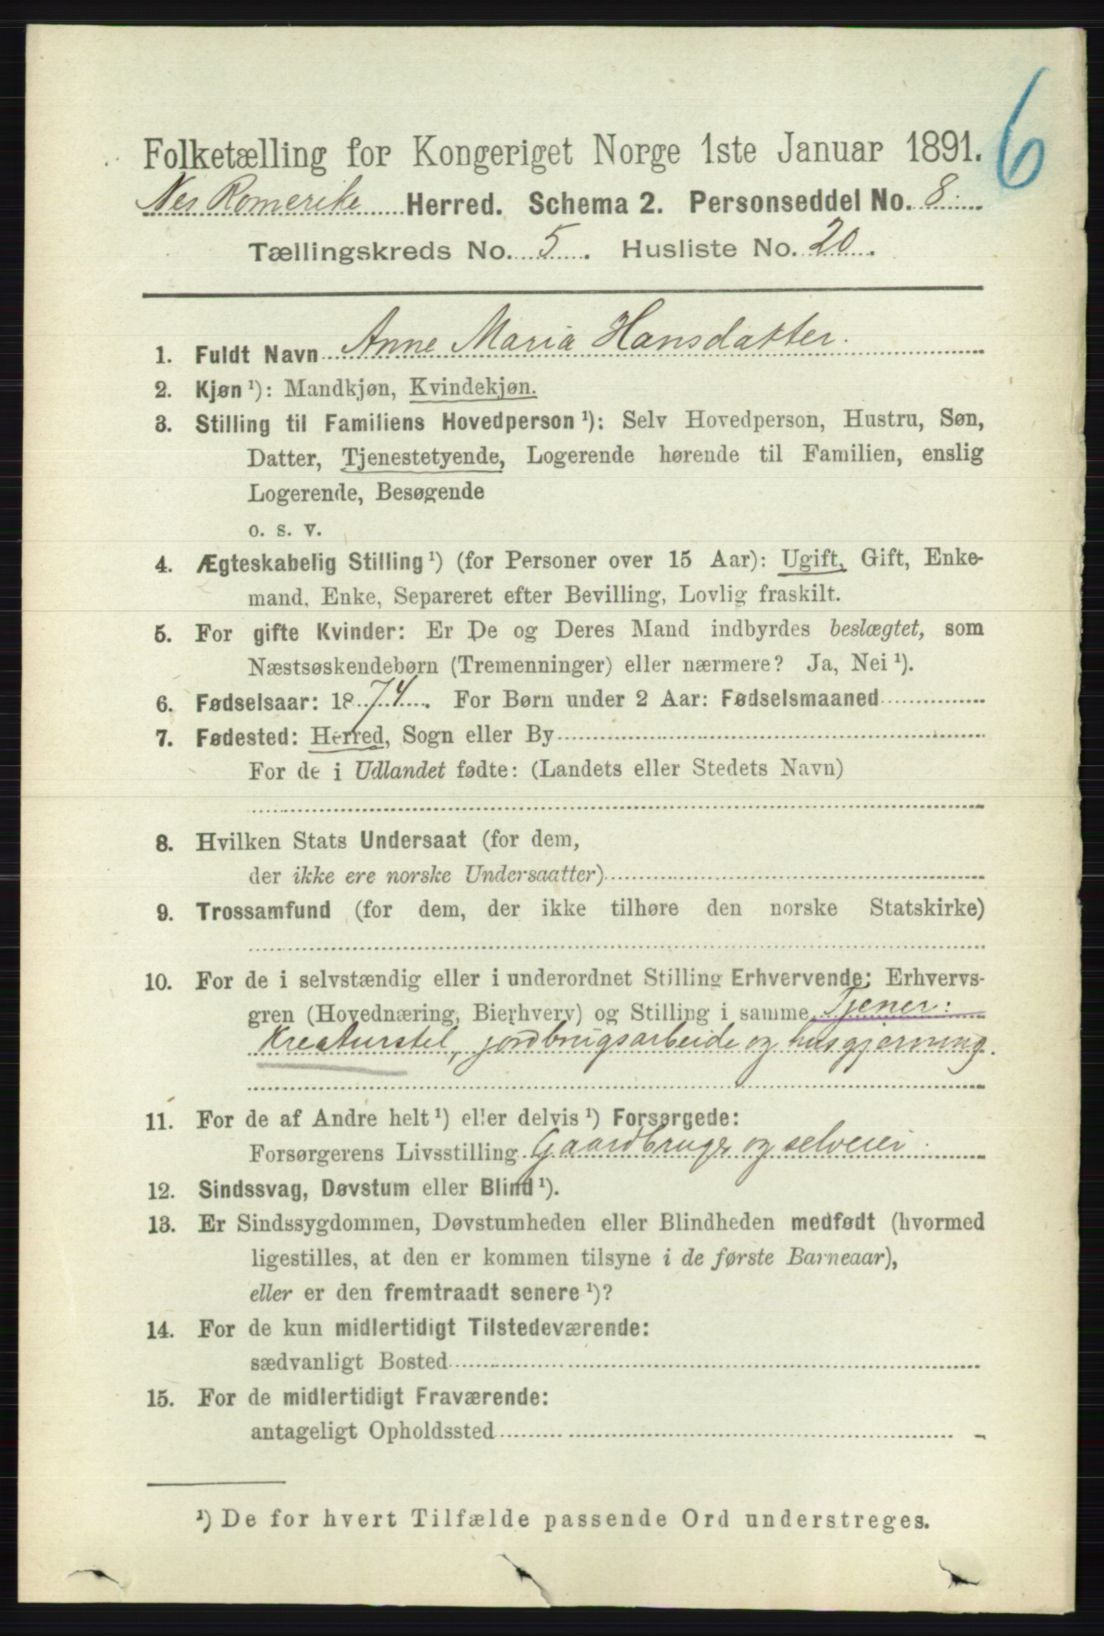 6
Folketælling for Kongeriget Norge 1ste Januar 1891.
Nes Romerike Herred. Schema 2. Personseddel No. 8.
Tællingskreds No. 5. Husliste No. 20.
1. Fuldt Navn Anne Maria Hansdatter.
2. Kjøn ¹): Mandkjøn, Kvindekjøn.
3. Stilling til Familiens Hovedperson ¹): Selv Hovedperson, Hustru, Søn,
Datter, Tjenestetyende, Logerende hørende til Familien, enslig
Logerende, Besøgende
o. s. v.
4. Ægteskabelig Stilling ¹) (for Personer over 15 Aar): Ugift, Gift, Enke-
mand, Enke, Separeret efter Bevilling, Lovlig fraskilt.
5. For gifte Kvinder: Er De og Deres Mand indbyrdes beslægtet, som
Næstsøskendebørn (Tremenninger) eller nærmere? Ja, Nei ¹).
6. Fødselsaar: 1874. For Børn under 2 Aar: Fødselsmaaned
7. Fødested: Herred, Sogn eller By
For de i Udlandet fødte: (Landets eller Stedets Navn)
8. Hvilken Stats Undersaat (for dem,
der ikke ere norske Undersaatter)
9. Trossamfund (for dem, der ikke tilhøre den norske Statskirke)
10. For de i selvstændig eller i underordnet Stilling Erhvervende: Erhvervs-
gren (Hovednæring, Bierhverv) og Stilling i samme Tjener:
Kreaturstel, jordbrugsarbeide og husgjerning.
11. For de af Andre helt ¹) eller delvis ¹) Forsørgede:
Forsørgerens Livsstilling Gaardbruger og selveier.
12. Sindssvag, Døvstum eller Blind ¹).
13. Er Sindssygdommen, Døvstumheden eller Blindheden medfødt (hvormed
ligestilles, at den er kommen tilsyne i de første Barneaar),
eller er den fremtraadt senere ¹)?
14. For de kun midlertidigt Tilstedeværende:
sædvanligt Bosted
15. For de midlertidigt Fraværende:
antageligt Opholdssted
¹) De for hvert Tilfælde passende Ord understreges.